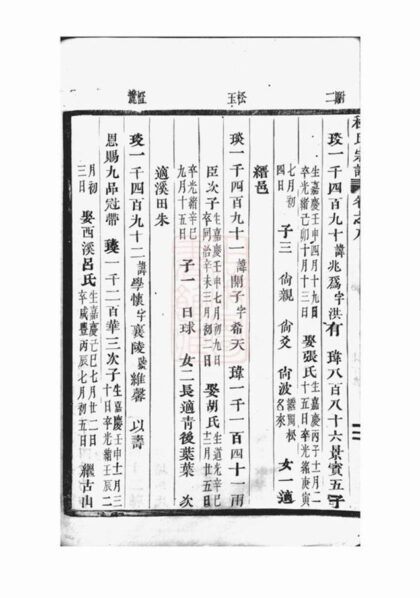 程氏宗譜 卷之八
琰一千四百九十 諱兆爲字洪有 瑋八百八十六景賓五子
生嘉慶壬申四月十九日
卒光緒己卯十月十三日 娶張氏 生嘉慶丙子十一月二
十五日卒光緒庚寅
七月初
四日 子三 尙親 尙爻 尙波 女一適
縉邑
琰一千四百九十一 諱開子字希天 瑋一千一百四十一雨
臣次子 生嘉慶壬申七月初九日
卒同治辛未三月初二日 娶胡氏 生道光辛巳
十二月廿五日
卒光緒辛巳
九月十五日 子一 日球 女二長適青後葉葉 次
適溪田朱
琰一千四百九十二 諱學懷字襄陵號維馨 以壽
恩賜九品冠帶 一千二百華三次子 生嘉慶壬申十一月三
十日卒光緒壬辰二
月初
三日 娶西溪呂氏 生嘉慶己巳七月廿二日
辛咸豐丙辰七月初五日 繼古山